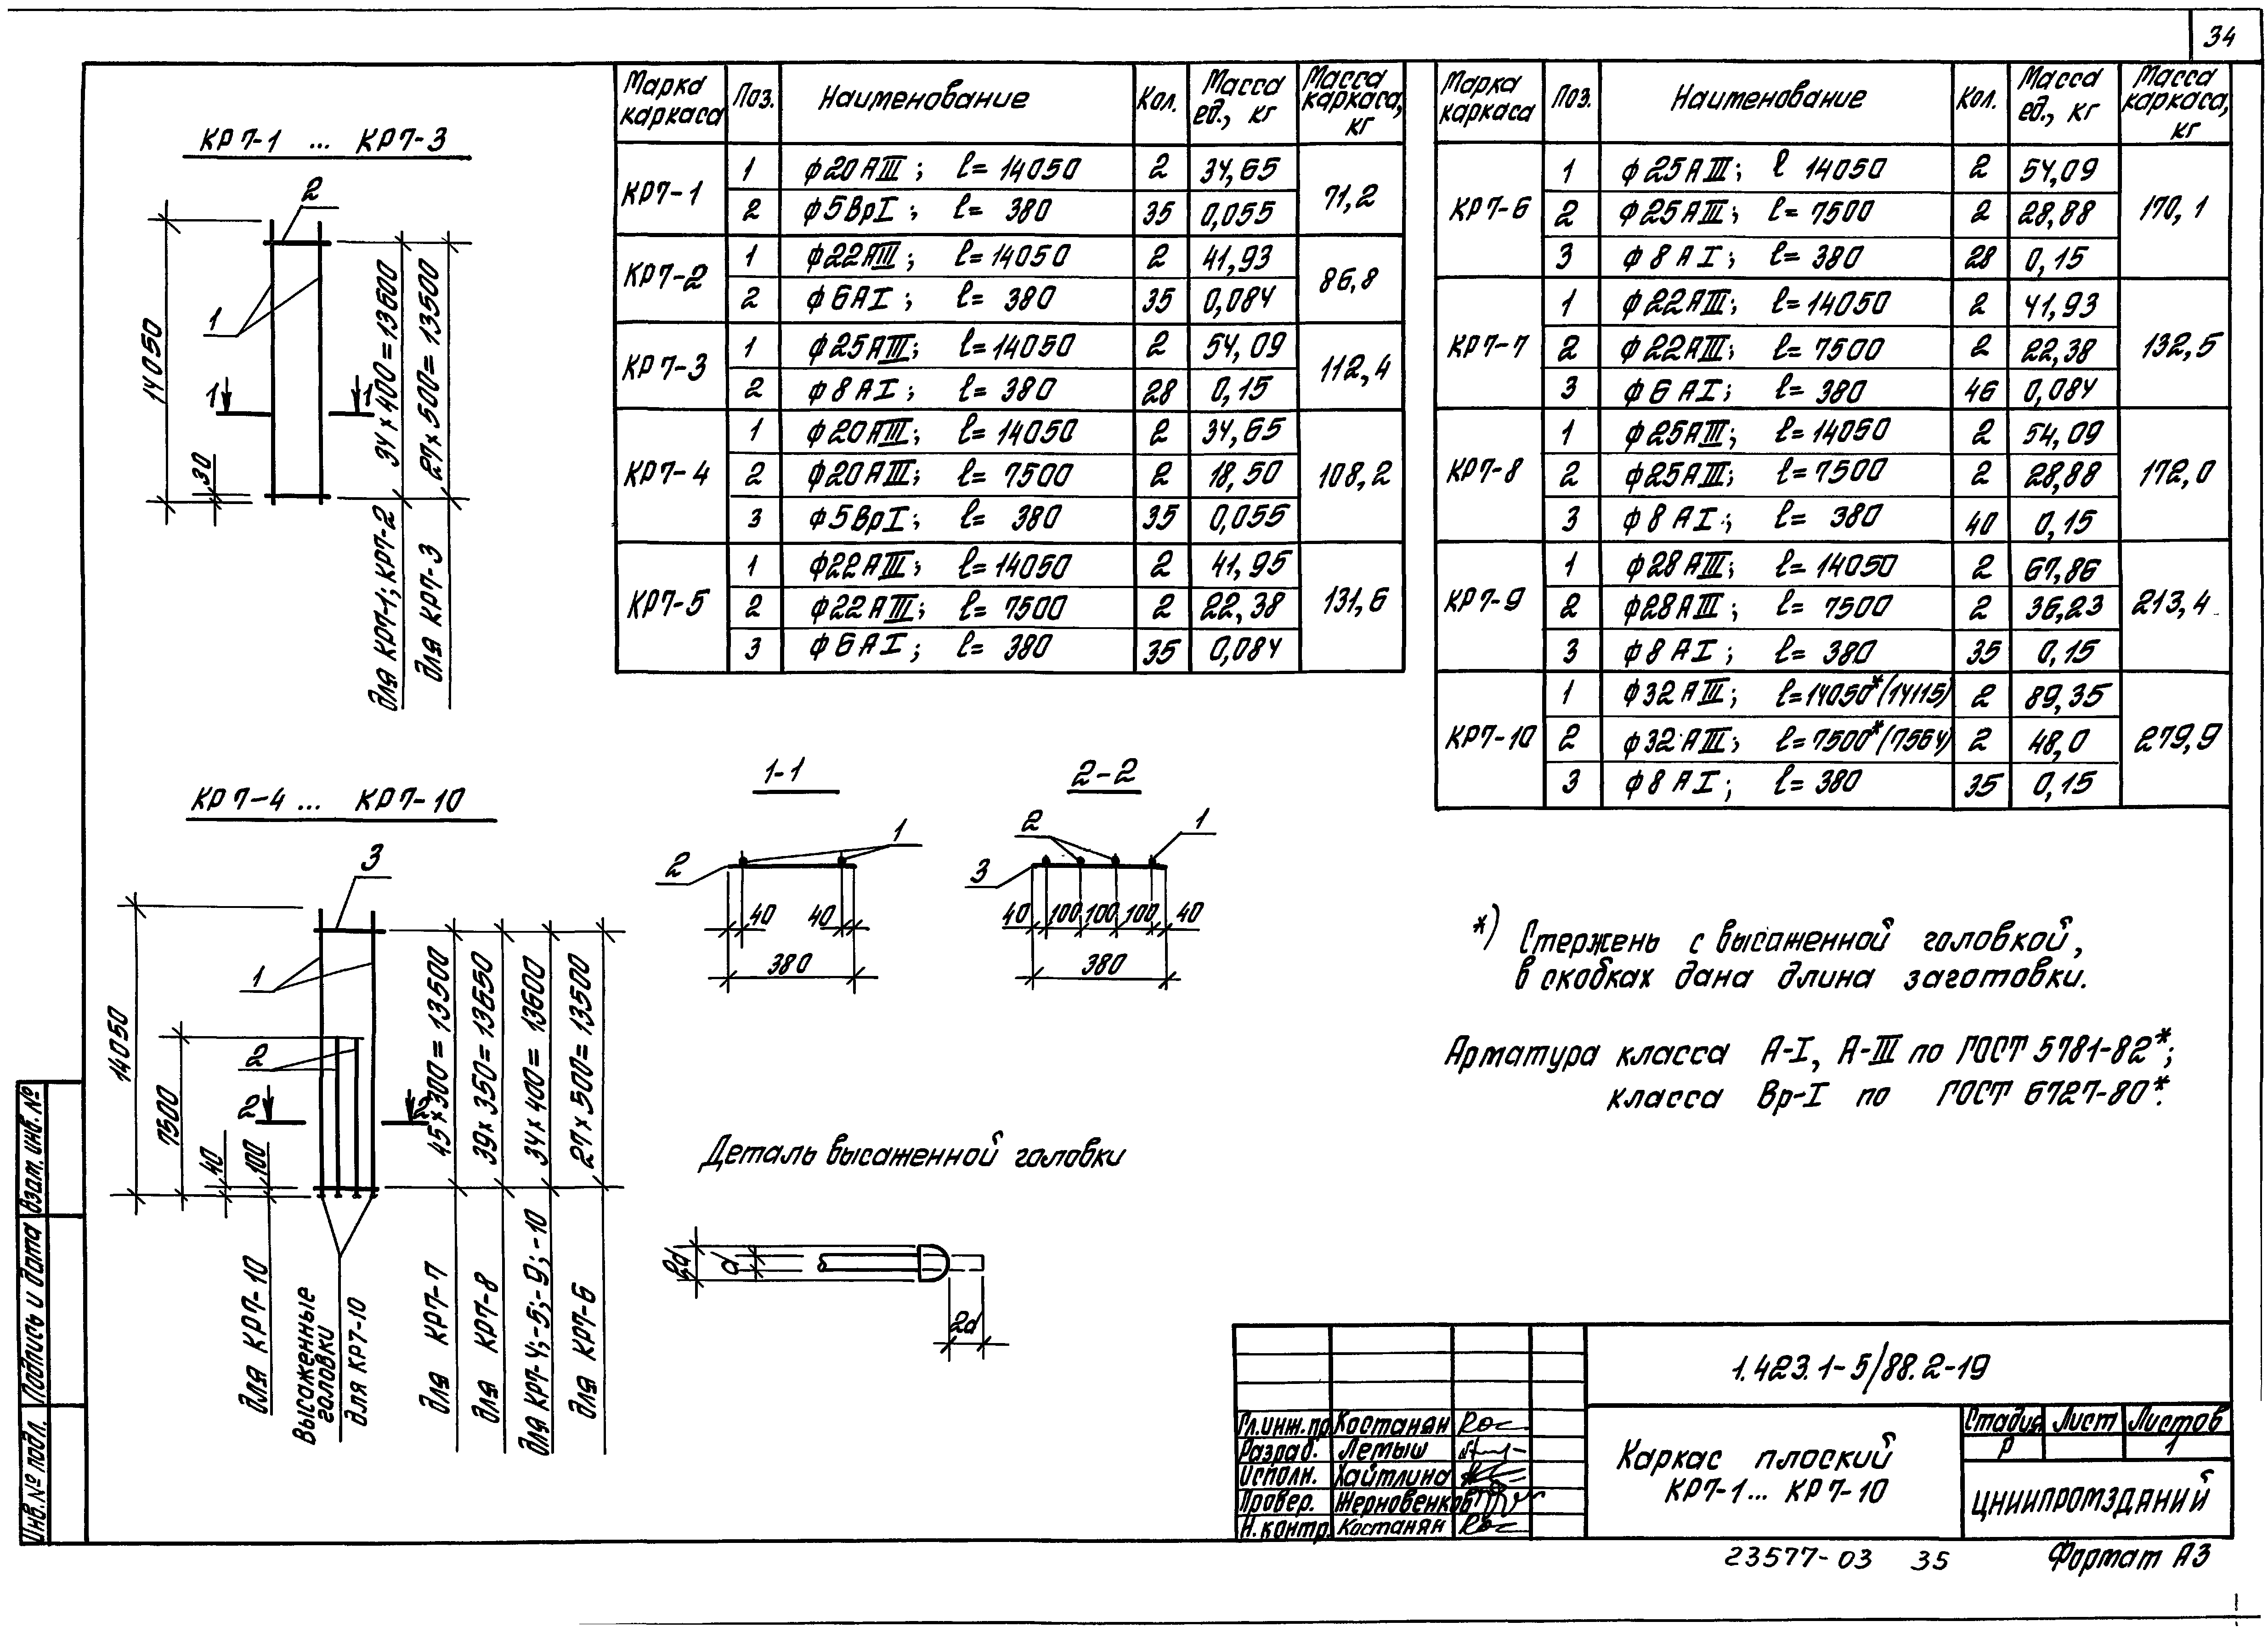 34
КР7-1 ... КР7-3
2
1
14050
30
1 1
34×400=13600
27×500=13500
для КР7-1; КР7-2
для КР7-3
Марка каркаса Поз. Наименование Кол. Масса ед., кг Масса каркаса, кг
КР7-1 1 ф20АIII; l=14050 2 34,65 71,2
2 ф5ВрI; l= 380 35 0,055
КР7-2 1 ф22АIII; l=14050 2 41,93 86,8
2 ф6АI; l= 380 35 0,084
КР7-3 1 ф25АIII; l=14050 2 54,09 112,4
2 ф8АI; l= 380 28 0,15
КР7-4 1 ф20АIII; l=14050 2 34,65 108,2
2 ф20АIII; l= 7500 2 18,50
3 ф5ВрI; l= 380 35 0,055
КР7-5 1 ф22АIII; l=14050 2 41,95 131,6
2 ф22АIII; l= 7500 2 22,38
3 ф6АI; l= 380 35 0,084
Марка каркаса Поз. Наименование Кол. Масса ед., кг Масса каркаса, кг
КР7-6 1 ф25АIII; l 14050 2 54,09 170,1
2 ф25АIII; l= 7500 2 28,88
3 ф8АI; l= 380 28 0,15
КР7-7 1 ф22АIII; l=14050 2 41,93 132,5
2 ф22АIII; l= 7500 2 22,38
3 ф6АI; l= 380 46 0,084
КР7-8 1 ф25АIII; l=14050 2 54,09 172,0
2 ф25АIII; l=7500 2 28,88
3 ф8АI; l= 380 40 0,15
КР7-9 1 ф28АIII; l=14050 2 67,86 213,4
2 ф28АIII; l= 7500 2 36,23
3 ф8АI; l= 380 35 0,15
КР7-10 1 ф32АIII; l=14050*(14115) 2 89,35 279,9
2 ф32АIII; l=7500*(7564) 2 48,0
3 ф8АI; l= 380 35 0,15
КР7-4 ... КР7-10
3
1
2
14050
7500
40
100
2 2
45×300=13500
39×350=13650
34×400=13600
27×500=13500
для КР7-10
Высаженные головки для КР7-10
для КР7-7
для КР7-8
для КР7-4;-5;-9;-10
для КР7-6
1-1
2 1
40 40
380
2-2
3 2 1
40 100 100 100 40
380
Деталь высаженной головки
d
2d
*) Стержень с высаженной головкой,
в скобках дана длина заготовки.
Арматура класса А-I, А-III по ГОСТ 5781-82*;
класса Вр-I по ГОСТ 6727-80*.
1.423.1-5/88.2-19
Гл.инж.пр Костанян
Разраб. Летыш
Исполн. Хайтлина
Провер. Жерновенков
Н.контр. Костанян
Каркас плоский
КР7-1... КР7-10
Стадия Лист Листов
Р 1
ЦНИИПРОМЗДАНИЙ
Инв.№ подл. Подпись и дата Взам. инв. №
23577-03 35
Формат А3